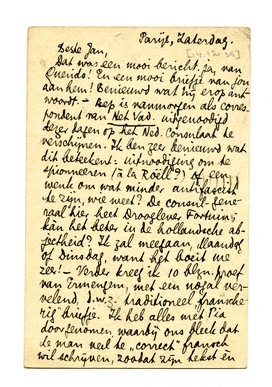 Parijs, Zaterdag.
Beste Jan,
Dat was een mooi bericht, ja, van
Querido! En een mooi briefje van jou
aan hem! Benieuwd wat hij erop ant-
woordt. – Ikzelf is vanmorgen als corres-
pondent van Het Vad. uitgenoodigd
dezer dagen op het Ned. Consulaat te
verschijnen. Ik ben zeer benieuwd wat
dit beteekent: uitnoodiging om te
spionneeren (à la Roëll?) of een
wenk om wat minder antifascist
te zijn, wie weet? De consul-gene-
raal hier heet Drooglever Fortuin;
kan het beter in de hollandsche ab-
jectheid? Ik zal meegaan, Maandag
of Dinsdag, want het boeit me
zeer! – Verder kreeg ik 10 blzn. proef
van Ermengem, met een nogal ver-
velend, d.w.z. traditioneel fransche-
rig briefje. Ik heb alles met Pia
doorgenomen, waarbij ons bleek dat
de man veel te "correct" fransch
wil schrijven, zoodat zijn tekst én